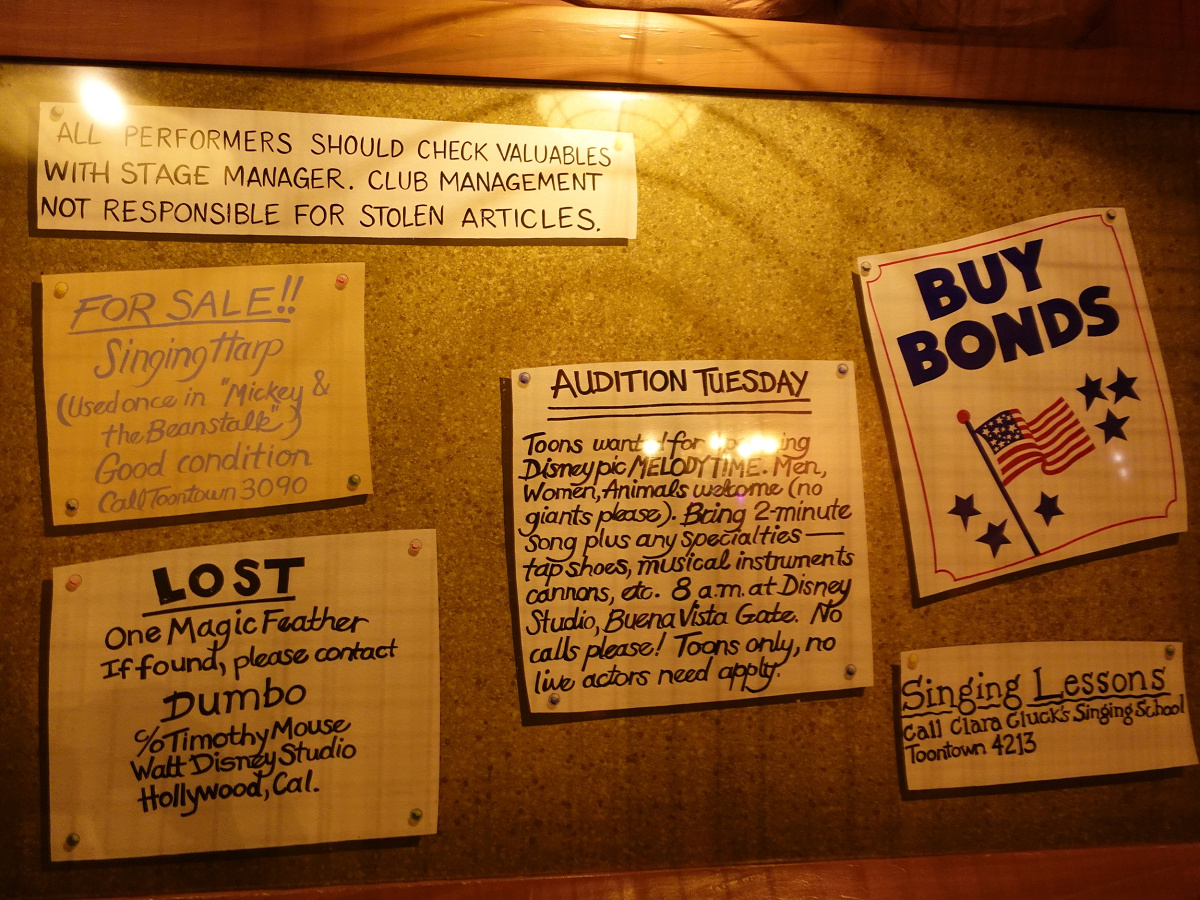 ALL PERFORMERS SHOULD CHECK VALUABLES
WITH STAGE MANAGER. CLUB MANAGEMENT
NOT RESPONSIBLE FOR STOLEN ARTICLES.
FOR SALE!!
Singing Harp
(Used once in "Mickey &
the Beanstalk")
Good condition
Call Toontown 3090
LOST
One Magic Feather
If found, please contact
Dumbo
c/o Timothy Mouse
Walt Disney Studio
Hollywood, Cal.
AUDITION TUESDAY
Toons wanted for
Disney pic MELODY TIME. Men,
Women, Animals welcome (no
giants please). Bring 2-minute
song plus any specialties —
tap shoes, musical instruments
cannons, etc. 8 a.m. at Disney
Studio, Buena Vista Gate. No
calls please! Toons only, no
live actors need apply.
BUY
BONDS
Singing Lessons
Call Clara Cluck's Singing School
Toontown 4213